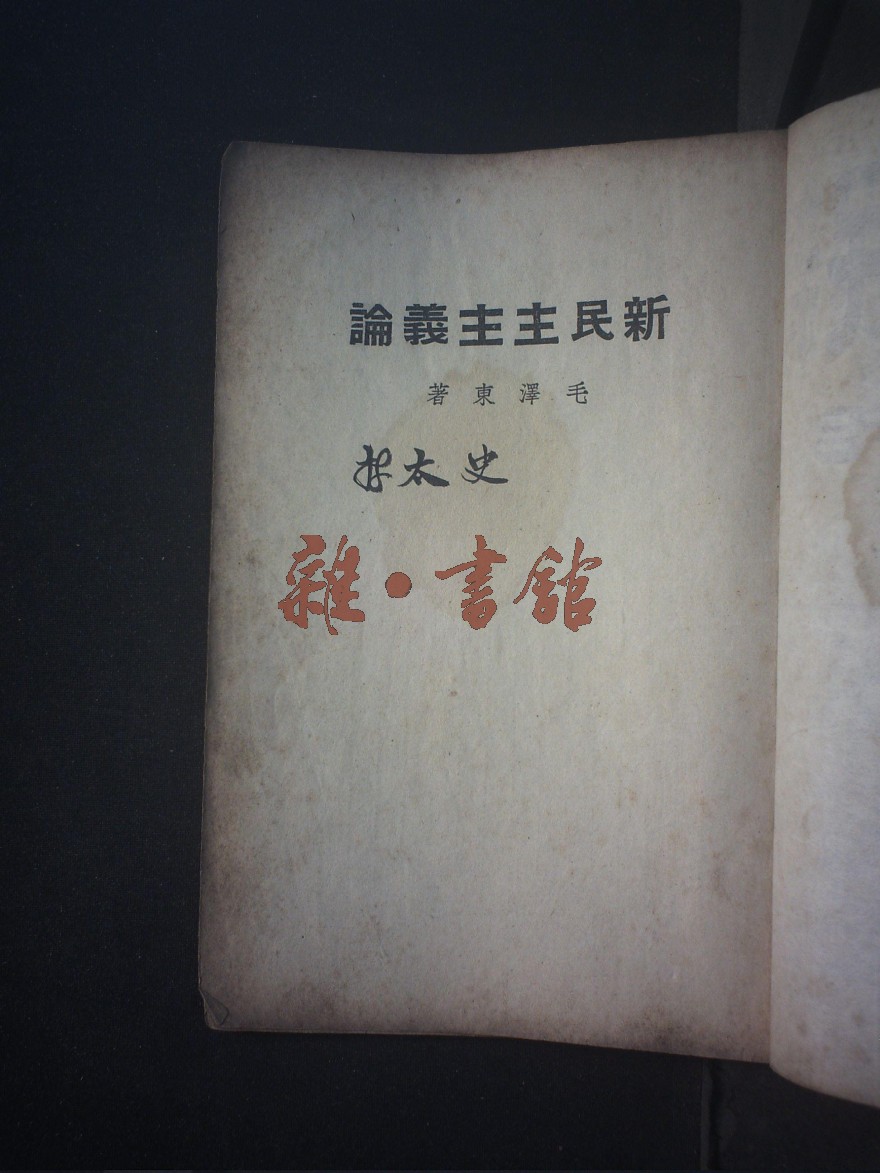 新民主主義論
毛澤東著
史太林
雜·書館